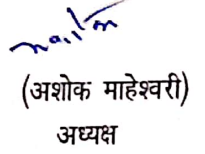 (अशोक माहेश्वरी)
अध्यक्ष